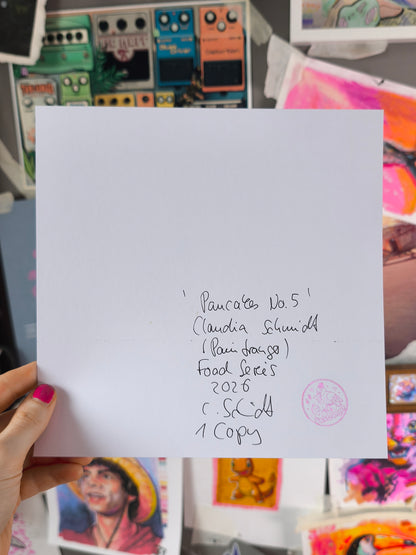 'Pancakes No.5'
Claudia Schmidt
(Paintdrangs)
Food Series
2026
C. Schmidt
1 Copy